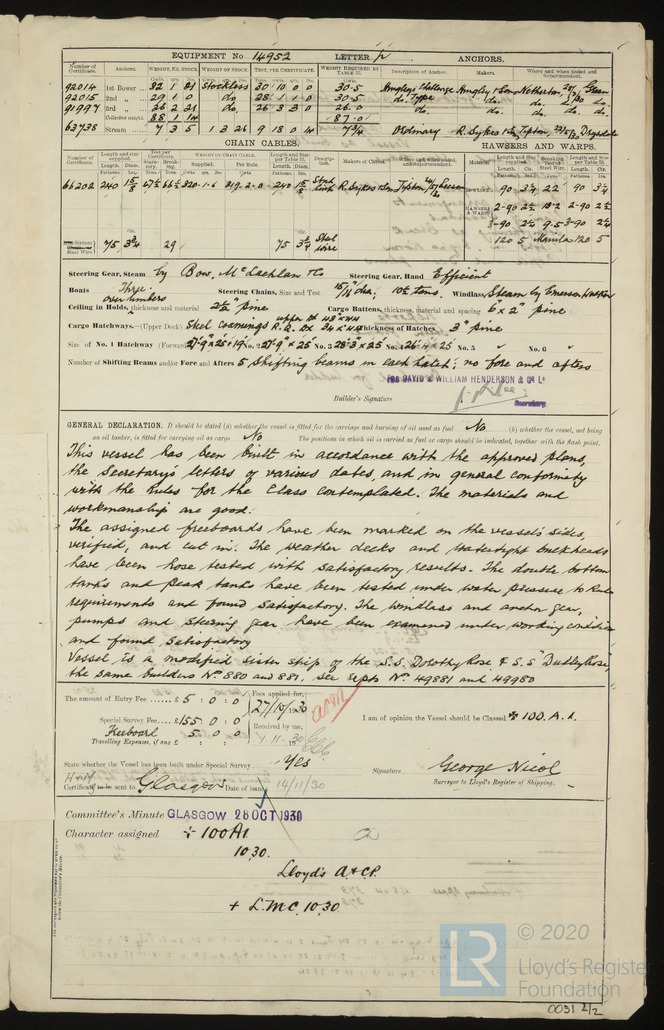 EQUIPMENT No 14952 LETTER p ANCHORS.
Number of Certificate. Anchors. WEIGHT, EX. STOCK. WEIGHT OF STOCK. TEST, PER CERTIFICATE. WEIGHT REQUIRED BY TABLE 31. Description of Anchor. Makers. Where and when tested and Superintendent.
92014 1st Bower 32 1 21 Stockless 30 10 0 0 30.5
92015 2nd " 29 1 0 do. 28 1 1 0 30.5 do. Type do. do. do.
91997 3rd " 26 2 21 do. 26 3 3 0 26.0 do. do. do.
Collective weight. 88 1 14 87.0
63738 Stream 7 3 5 1 3 26 9 18 0 14 7¾ Ordinary R. Sykes & Son Tipton
CHAIN CABLES. HAWSERS AND WARPS.
66202 240 1⅝ 320.1.6 319.2.0 240 1⅝ Stud link R. Sykes & Son Tipton
90 3¼ 22 90 3¼
HAWSERS & WARPS
120 5 Manila 120 5
Steel Wire 75 3¾ 29 75 3¾ Steel wire
Steering Gear, Steam by Bow, McLachlan & Co Steering Gear, Hand Efficient
Boats Three Steering Chains, Size and Test 15/16 dia, 10½ tons. Windlass Steam by Emerson Walker
Ceiling in Holds, thickness and material over timbers 2½" pine Cargo Battens, thickness, material and spacing 6" x 2" pine
Cargo Hatchways.—(Upper Deck) Steel coamings Thickness of Hatches 3" pine
Size of No. 1 Hatchway (Forward) No. 2 27'-9" x 25' No. 3 28'-3" x 25' No. 4 26'-4 x 25 No. 5 No. 6
Number of Shifting Beams and/or Fore and Afters 5 Shifting beams in each hatch; no fore and afters
FOR DAVID & WILLIAM HENDERSON & CO LD
Builder's Signature
Secretary.
GENERAL DECLARATION. It should be stated (a) whether the vessel is fitted for the carriage and burning of oil used as fuel No (b) whether the vessel, not being
an oil tanker, is fitted for carrying oil as cargo No The positions in which oil is carried as fuel or cargo should be indicated, together with the flash point.
This vessel has been built in accordance with the approved plans,
the Secretary's letters of various dates, and in general conformity
with the Rules for the Class contemplated. The materials and
workmanship are good.
The assigned freeboards have been marked on the vessel's sides,
verified, and cut in. The weather decks and watertight bulkheads
have been hose tested with satisfactory results. The double bottom
tanks and peak tanks have been tested under water pressure to Rule
requirements and found satisfactory. The windlass and anchor gear,
pumps and steering gear have been examined under working condition
and found satisfactory
Vessel is a modified sister ship of the S.S. Dorothy Rose & S.S "Dudley Rose",
the same builders Nos 880 and 881. see rpts Nos 49881 and 49950
The amount of Entry Fee £ 5 : 0 : 0 Fees applied for, 27/10/1930
Special Survey Fee £ 155 : 0 : 0 Received by me,
Freeboard 5 : 0 : 0 11 1930
Travelling Expenses, if any £
I am of opinion the Vessel should be Classed ✠ 100.A.1.
State whether the Vessel has been built under Special Survey Yes
Signature George Nicol
Surveyor to Lloyd's Register of Shipping.
Certificate to be sent to Glasgow Date of issue 14/11/30
Committee's Minute GLASGOW 28 OCT 1930
Character assigned ✠ 100A1
10.30.
Lloyd's A & C.P.
+ L.M.C. 10.30
LR
© 2020
Lloyd's Register
Foundation
0031 2/2